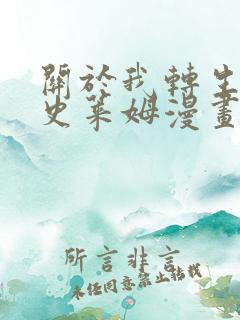 關於我轉生
史萊姆漫畫
所言非言
未经同意禁止转载